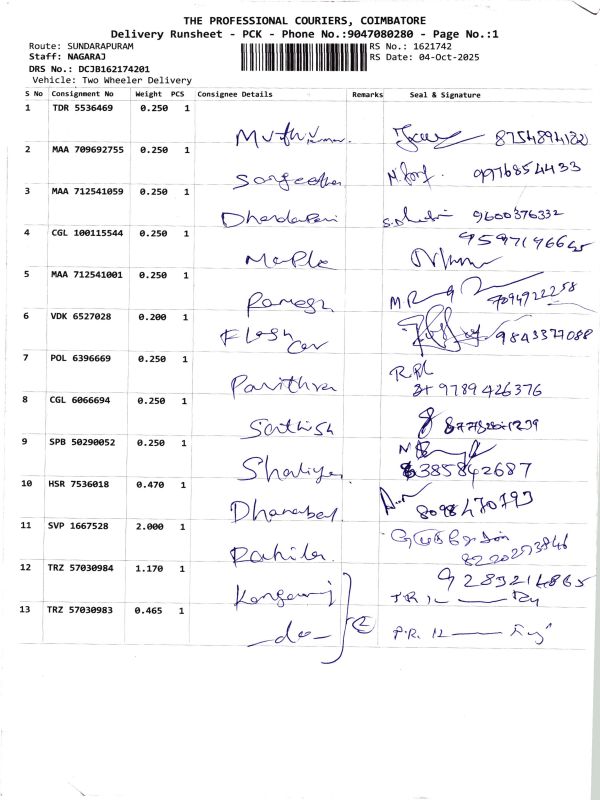 THE PROFESSIONAL COURIERS, COIMBATORE
Delivery Runsheet - PCK - Phone No.:9047080280 - Page No.:1
Route: SUNDARAPURAM RS No.: 1621742
Staff: NAGARAJ RS Date: 04-Oct-2025
DRS No.: DCJB162174201
Vehicle: Two Wheeler Delivery
S No Consignment No Weight PCS Consignee Details Remarks Seal & Signature
1 TDR 5536469 0.250 1
Muthukumar 8754894182
2 MAA 709692755 0.250 1
Sangeetha 9976854433
3 MAA 712541059 0.250 1
Dhandapani 9600376332
4 CGL 100115544 0.250 1
Maple
5 MAA 712541001 0.250 1
Ramesh 7094922258
6 VDK 6527028 0.200 1
Flash Car 9843377088
7 POL 6396669 0.250 1
Pavithra 9789426376
8 CGL 6066694 0.250 1
Sathish
9 SPB 50290052 0.250 1
6385842687
10 HSR 7536018 0.470 1
Dhanabal 8098470793
11 SVP 1667528 2.000 1
Rahila
12 TRZ 57030984 1.170 1
Kangaraj 9283214865
13 TRZ 57030983 0.465 1
-do- 2